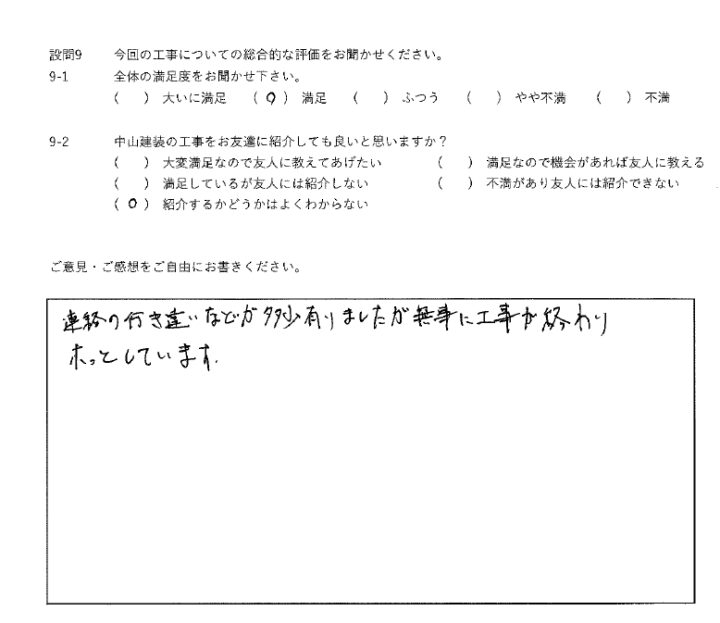 設問9 今回の工事についての総合的な評価をお聞かせください。
9-1 全体の満足度をお聞かせ下さい。
( ) 大いに満足 ( O ) 満足 ( ) ふつう ( ) やや不満 ( ) 不満
9-2 中山建装の工事をお友達に紹介しても良いと思いますか？
( ) 大変満足なので友人に教えてあげたい ( ) 満足なので機会があれば友人に教える
( ) 満足しているが友人には紹介しない ( ) 不満があり友人には紹介できない
( O ) 紹介するかどうかはよくわからない
ご意見・ご感想をご自由にお書きください。
連絡の行き違いなどが多少有りましたが無事に工事が終わり
ホッとしています.